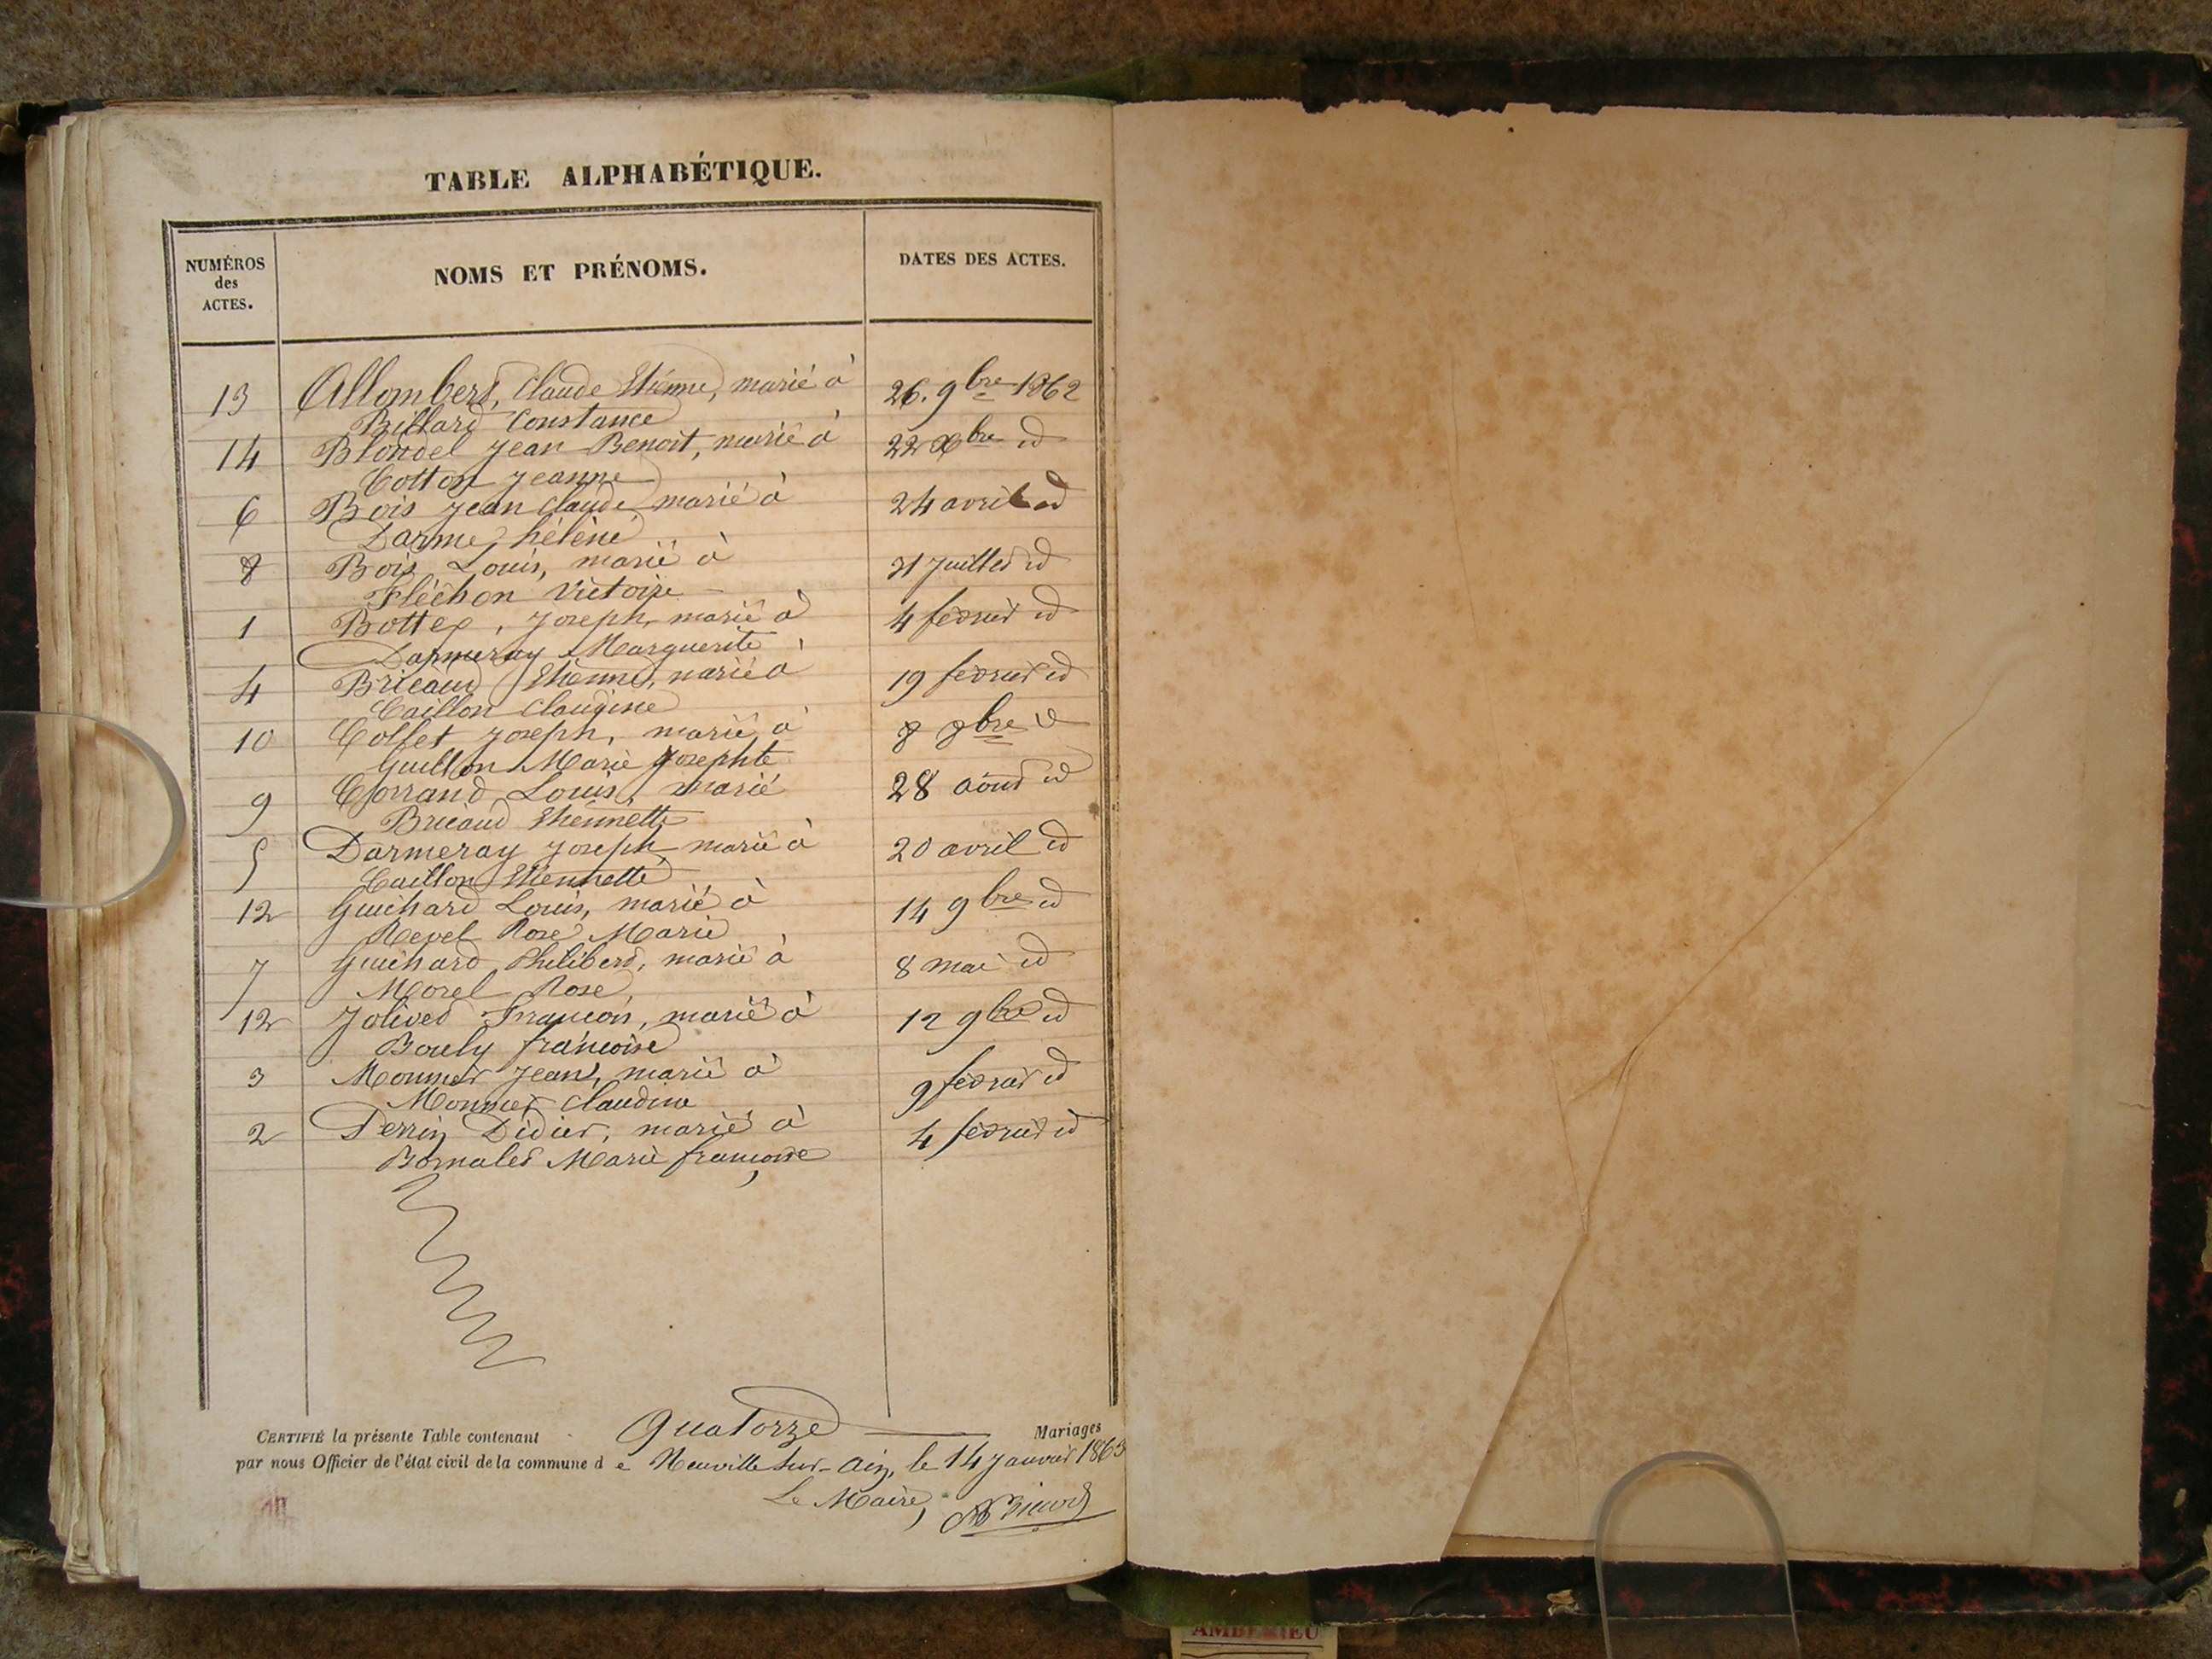 TABLE ALPHABÉTIQUE.
NUMÉROS
des
ACTES.
NOMS ET PRÉNOMS.
DATES DES ACTES.
13 Allombert, Claude Etienne, marié à 26. 9bre 1862
Billard Constance
14 Blondel Jean Benoit, marié à 22 Xbre id
Cotton Jeanne
6 Bois Jean Claude marié à 24 avril id
Darme, hélène
8 Bois Louis, marié à 31 Juillet id
Fléchon Victoire
1 Bottex, Joseph, marié à 4 février id
Darmeray Marguerite
4 Bricaud Etienne, marié à 19 février id
Caillon Claudine
10 Collet Joseph, marié à 8 8bre id
Guillon Marie Josephte
9 Corrand Louis, marié 28 août id
Bricaud Etiennette
5 Darmeray Joseph, marié à 20 avril id
Caillon Etiennette
12 Guichard Louis, marié à 14 9bre id
Revel Rose Marie
7 Guichard Philibert, marié à 8 mai id
Morel Rose,
12 Jolivet François, marié à 12 9bre id
Bouly françoise
3 Monnier Jean, marié à 9 février id
Monnier Claudine
2 Perrin Didier, marié à 4 février id
Marie françoise
CERTIFIÉ la présente Table contenant Quatorze Mariages
par nous Officier de l'état civil de la commune d e Neuville sur-Ain, le 14 Janvier 1863
Le Maire,
AMBERIEU